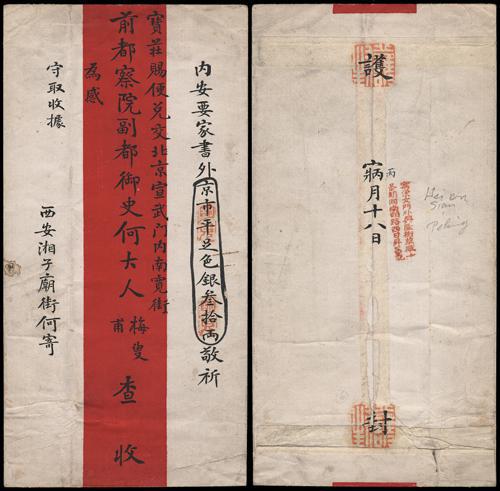 内安要家書外京市平足色銀叁拾兩敬祈
寶莊賜便兑交北京宣武門内南寬街
前都察院副都御史何大人梅叟甫查收
為感
守取收據
西安湘子廟街何寄
護
丙寎月十八日
封
Hsi an
Sian
Peking